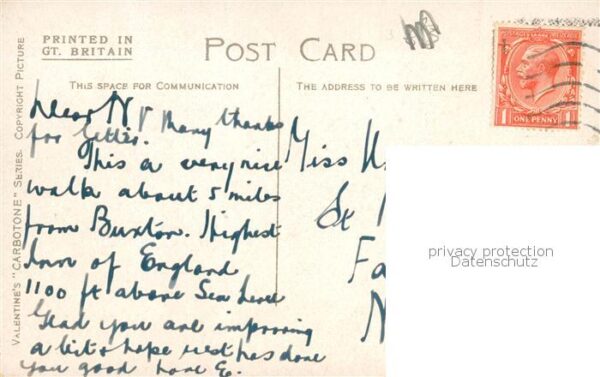 PRINTED IN
GT. BRITAIN
POST CARD
THIS SPACE FOR COMMUNICATION
THE ADDRESS TO BE WRITTEN HERE
VALENTINE'S "CARBOTONE" SERIES. COPYRIGHT PICTURE
ONE PENNY
1 1
Dear N Many thanks
for letter.
This a very nice
walk about 5 miles
from Buxton. Highest
town of England
1100 ft above Sea Level
Glad you are improving
a bit & hope rest has done
you good love E.
Miss
St
Fa
N
privacy protection
Datenschutz